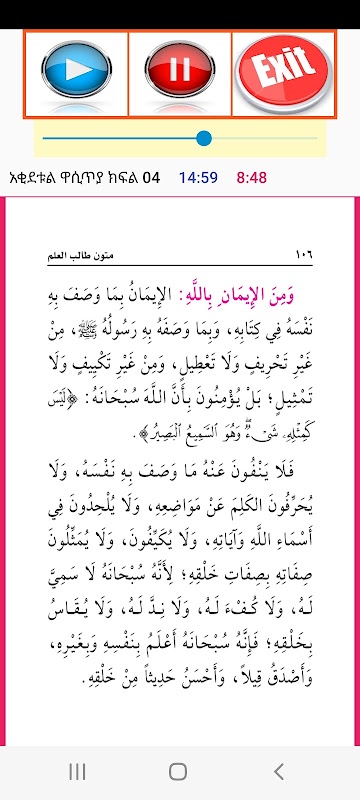 Exit
አቂደቱል ዋሲጥያ ክፍል 04 14:59 8:48
١٠٦ متون طالب العلم
وَمِنَ الإِيمَانِ بِاللَّهِ: الإِيمَانُ بِمَا وَصَفَ بِهِ
نَفْسَهُ فِي كِتَابِهِ، وَبِمَا وَصَفَهُ بِهِ رَسُولُهُ ﷺ، مِنْ
غَيْرِ تَحْرِيفٍ وَلَا تَعْطِيلٍ، وَمِنْ غَيْرِ تَكْيِيفٍ وَلَا
تَمْثِيلٍ؛ بَلْ يُؤْمِنُونَ بِأَنَّ اللَّهَ سُبْحَانَهُ: ﴿لَيْسَ
كَمِثْلِهِۦ شَىْءٌۖ وَهُوَ السَّمِيعُ الْبَصِيرُ﴾.
فَلَا يَنْفُونَ عَنْهُ مَا وَصَفَ بِهِ نَفْسَهُ، وَلَا
يُحَرِّفُونَ الكَلِمَ عَنْ مَوَاضِعِهِ، وَلَا يُلْحِدُونَ فِي
أَسْمَاءِ اللَّهِ وَآيَاتِهِ، وَلَا يُكَيِّفُونَ، وَلَا يُمَثِّلُونَ
صِفَاتِهِ بِصِفَاتِ خَلْقِهِ؛ لِأَنَّهُ سُبْحَانَهُ لَا سَمِيَّ
لَهُ، وَلَا كُفْءَ لَهُ، وَلَا نِدَّ لَهُ، وَلَا يُقَاسُ
بِخَلْقِهِ؛ فَإِنَّهُ سُبْحَانَهُ أَعْلَمُ بِنَفْسِهِ وَبِغَيْرِهِ،
وَأَصْدَقُ قِيلاً، وَأَحْسَنُ حَدِيثاً مِنْ خَلْقِهِ.